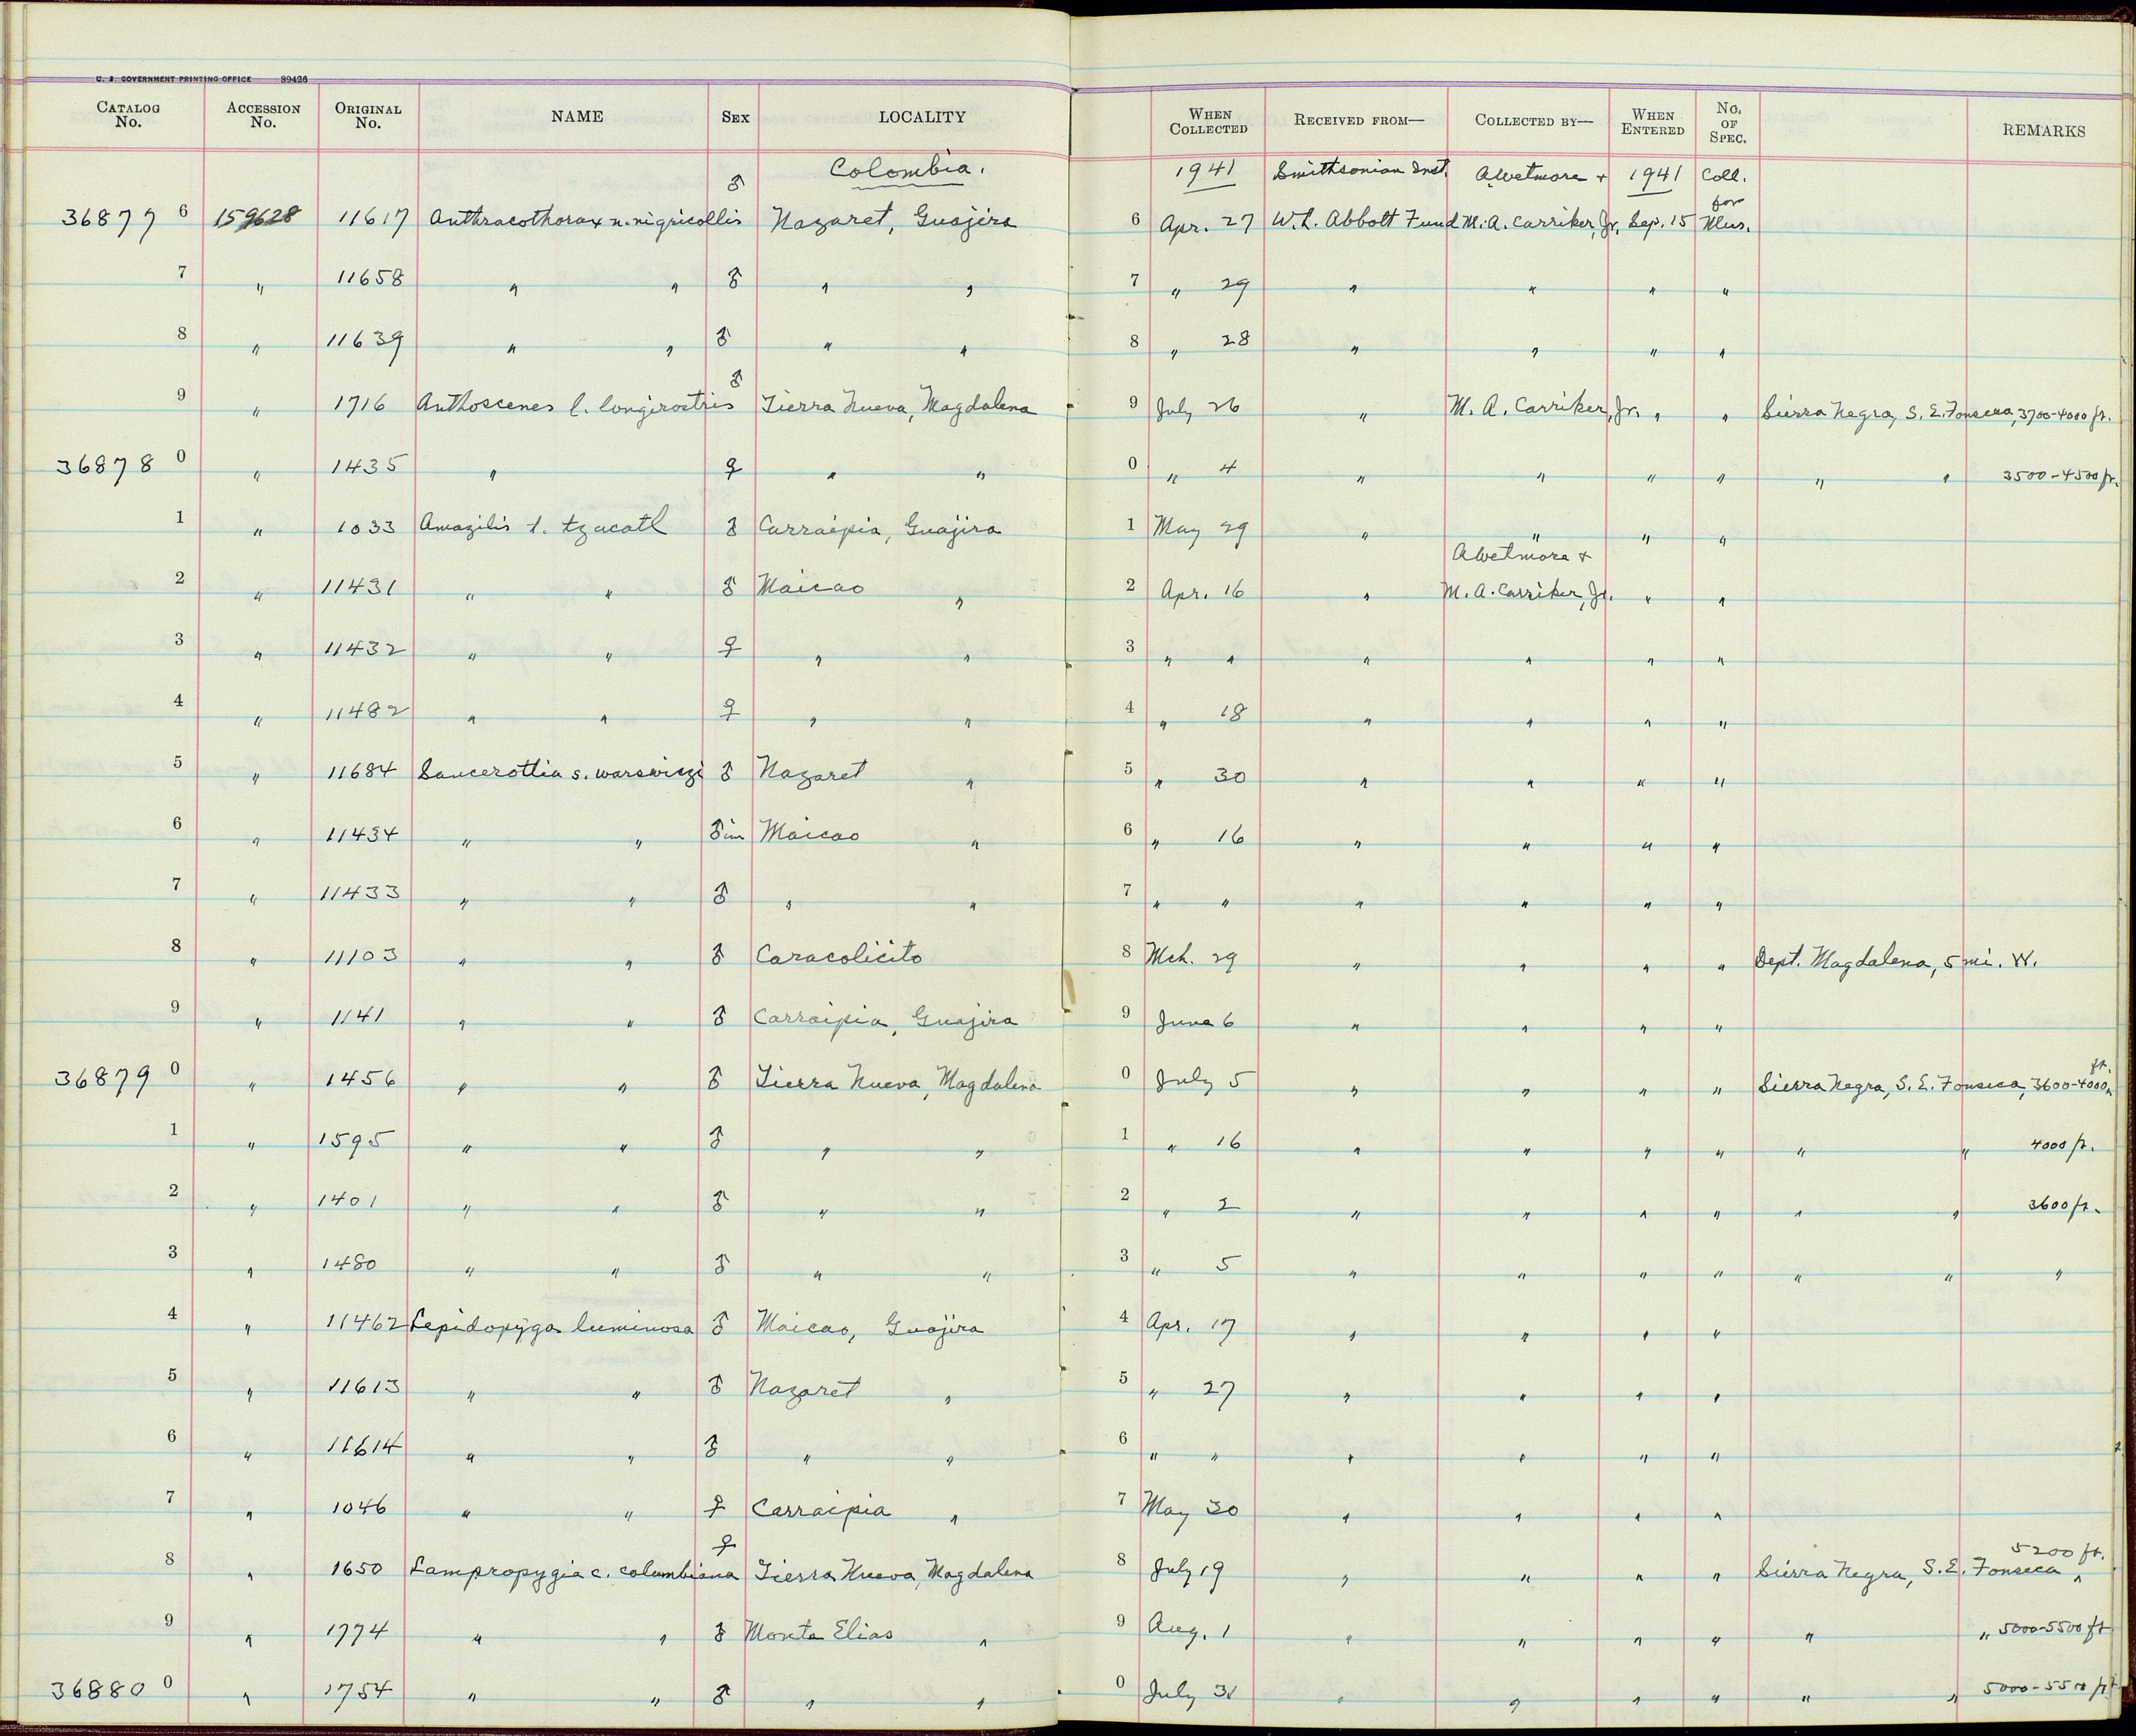 U. S. GOVERNMENT PRINTING OFFICE 39426
CATALOG No. ACCESSION No. ORIGINAL No. NAME SEX LOCALITY WHEN COLLECTED RECEIVED FROM— COLLECTED BY— WHEN ENTERED No. OF SPEC. REMARKS
Colombia. 1941 Smithsonian Inst. AWetmore + 1941 Coll. for
36877 6 159628 11617 Anthracothorax n. nigricollis ♂ Nazaret, Guajira 6 Apr. 27 W. L. Abbott Fund M. A. Carriker, Jr. Sep. 15 Mus.
7 " 11658 " " ♂ " " 7 " 29 " " " "
8 " 11639 " " ♂ " " 8 " 28 " " " "
9 " 1716 Anthoscenes l. longirostris ♂ Tierra Nueva, Magdalena 9 July 26 " M. A. Carriker, Jr. " " Sierra Negra, S. E. Fonseca, 3700-4000 ft.
36878 0 " 1435 " ♀ " " 0 " 4 " " " " " " 3500-4500 ft.
1 " 1033 Amazilis t. tzacatl ♂ Carraipia, Guajira 1 May 29 " " " "
AWetmore +
2 " 11431 " " ♂ Maicao " 2 Apr. 16 " M. A. Carriker, Jr. " "
3 " 11432 " " ♀ " " 3 " " " " " "
4 " 11482 " " ♀ " " 4 " 18 " " " "
5 " 11684 Saucerottia s. warswiczi ♂ Nazaret " 5 " 30 " " " "
6 " 11434 " " ♂ im Maicao " 6 " 16 " " " "
7 " 11433 " " ♂ " " 7 " " " " " "
8 " 11103 " " ♂ Caracolicito 8 Mch. 29 " " " " Dept. Magdalena, 5 mi. W.
9 " 1141 " " ♂ Carraipia, Guajira 9 June 6 " " " "
36879 0 " 1456 " " ♂ Tierra Nueva, Magdalena 0 July 5 " " " " Sierra Negra, S. E. Fonseca, 3600-4000 ft.
1 " 1595 " " ♂ " " 1 " 16 " " " " " " 4000 ft.
2 " 1401 " " ♂ " " 2 " 2 " " " " " " 3600 ft.
3 " 1480 " " ♂ " " 3 " 5 " " " " " " "
4 " 11462 Lepidopyga luminosa ♂ Maicao, Guajira 4 Apr. 17 " " " "
5 " 11613 " " ♂ Nazaret " 5 " 27 " " " "
6 " 11614 " " ♂ " " 6 " " " " " "
7 " 1046 " " ♀ Carraipia " 7 May 30 " " " "
8 " 1650 Lampropygia c. columbiana ♀ Tierra Nueva, Magdalena 8 July 19 " " " " Sierra Negra, S. E. Fonseca, 5200 ft.
9 " 1774 " " ♂ Monte Elias " 9 Aug. 1 " " " " " " 5000-5500 ft
36880 0 " 1754 " " ♂ " " 0 July 31 " " " " " " 5000-5500 ft